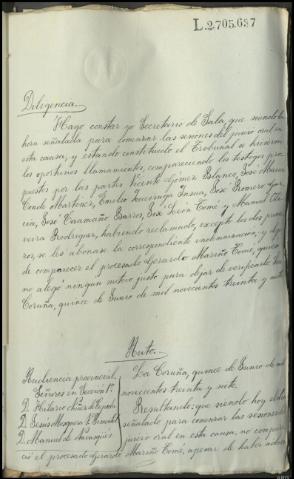 L.2.705.697
Diligencia.
Hago constar yo Secretario de Sala, que siendo la
hora señalada para comenzar las sesiones del juicio oral en
esta causa, y estando constituido el Tribunal se hicieron
los oportunos llamamientos, compareciendo los testigos pro-
puestos por las partes Vicente Gómez Blanco, José María
Conde Martínez, Emilio Insua, José Romero Gar-
cía, José Caamaño Barros, José León Tomé y Manuel
Rodríguez, habiendo reclamado, excepto los dos prime-
ros, se les abonase la correspondiente indemnización, y
de comparecer el procesado Gerardo Mariño Tomé, quien
no alegó ningún motivo justo para dejar de verificarlo.
Coruña, quince de Enero de mil novecientos treinta y siete
Auto.
Audiencia provincial
La Coruña, quince de Enero de mil
Señores en Sección 1ª
novecientos treinta y siete.
D. Hilario
Resultando: que siendo hoy el día
D. Jesús
señalado para comenzar las sesiones del
D. Manuel de
juicio oral en esta causa, no compare-
ció el procesado Gerardo Mariño Tomé, apesar de haber sido